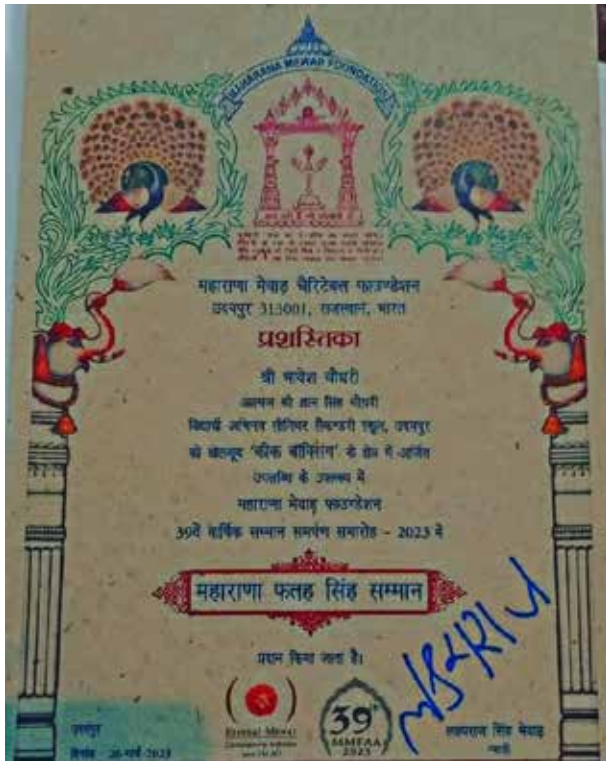 MAHARANA MEWAR FOUNDATION
महाराणा मेवाड़ चैरिटेबल फाउण्डेशन
उदयपुर 313001, राजस्थान, भारत
प्रशस्तिका
श्री भावेश चौधरी
आत्मज श्री ज्ञान सिंह चौधरी
विद्यार्थी अभिनव सीनियर सैकण्डरी स्कूल, उदयपुर
को खेलकूद 'कीक बॉक्सिंग' के क्षेत्र में अर्जित
उपलब्धि के उपलक्ष्य में
महाराणा मेवाड़ फाउण्डेशन
39वें वार्षिक सम्मान समर्पण समारोह - 2023 में
महाराणा फतह सिंह सम्मान
प्रदान किया जाता है।
Eternal Mewar
39th
MMFAA
2023
उदयपुर
दिनांक - 26 मार्च 2023
लक्ष्यराज सिंह मेवाड़
न्यासी